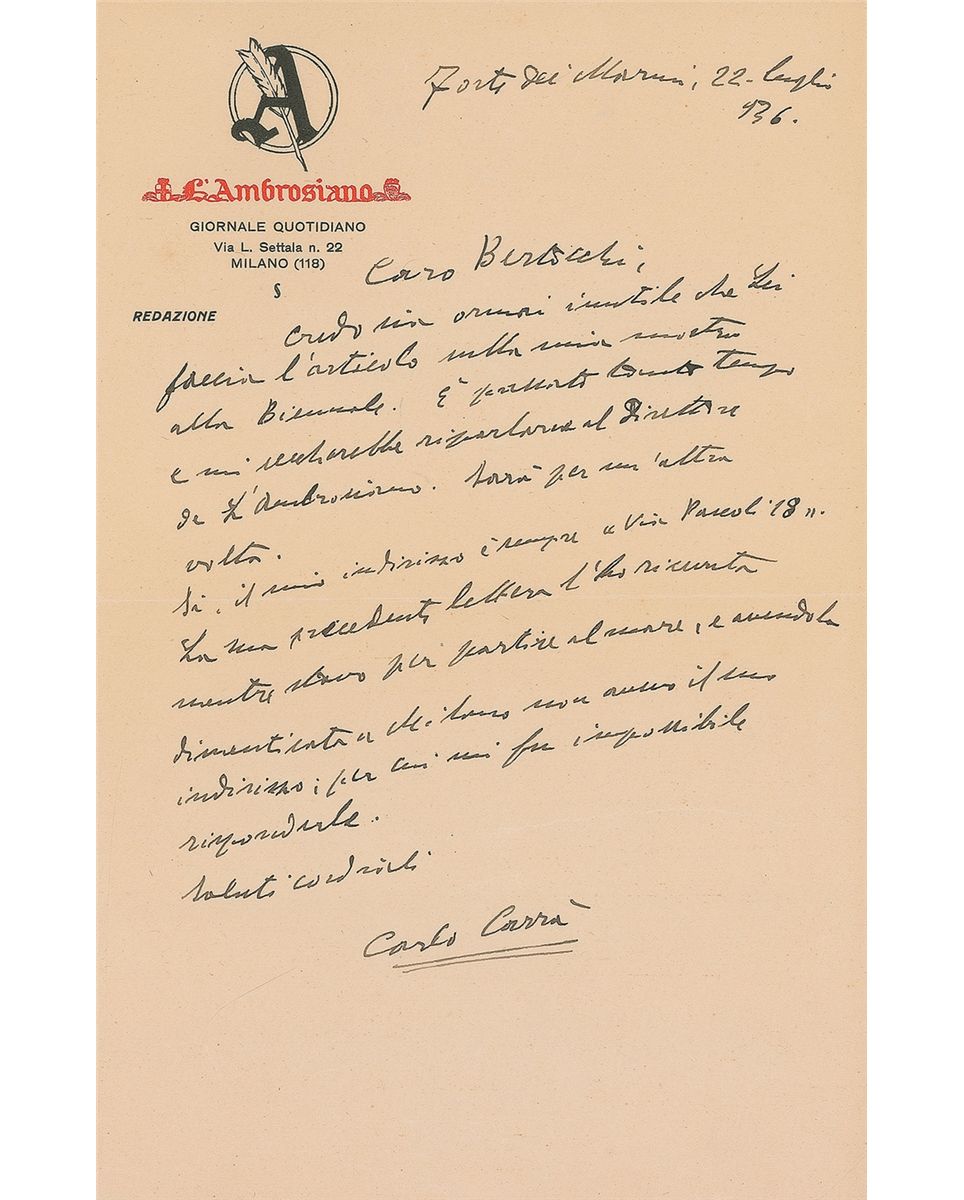 A
L'Ambrosiano
GIORNALE QUOTIDIANO
Via L. Settala n. 22
MILANO (118)
§
REDAZIONE
Forte dei Marmi, 22 - luglio
936.
Caro Bertocchi,
credo sia ormai inutile che Lei
faccia l'articolo sulla mia mostra
alla Biennale. È passato tanto tempo
e mi seccherebbe riparlarne al Direttore
de L'Ambrosiano. Sarà per un'altra
volta.
Sì, il mio indirizzo è sempre "Via Pascoli 18".
La sua precedente lettera l'ho ricevuta
mentre stavo per partire al mare, e avendola
dimenticata a Milano non avevo il suo
indirizzo; per cui mi fu impossibile
risponderle.
Saluti cordiali
Carlo Carrà